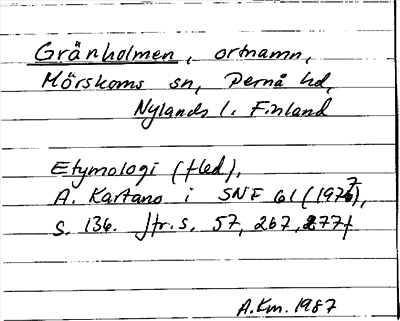 Gränholmen, ortnamn,
Mörskoms sn, Pernå hd,
Nylands l. Finland
Etymologi (fled),
A. Kartano i SNF 61 (1977),
s. 136. Jfr. s. 57, 267, 277f
A.Km. 1987